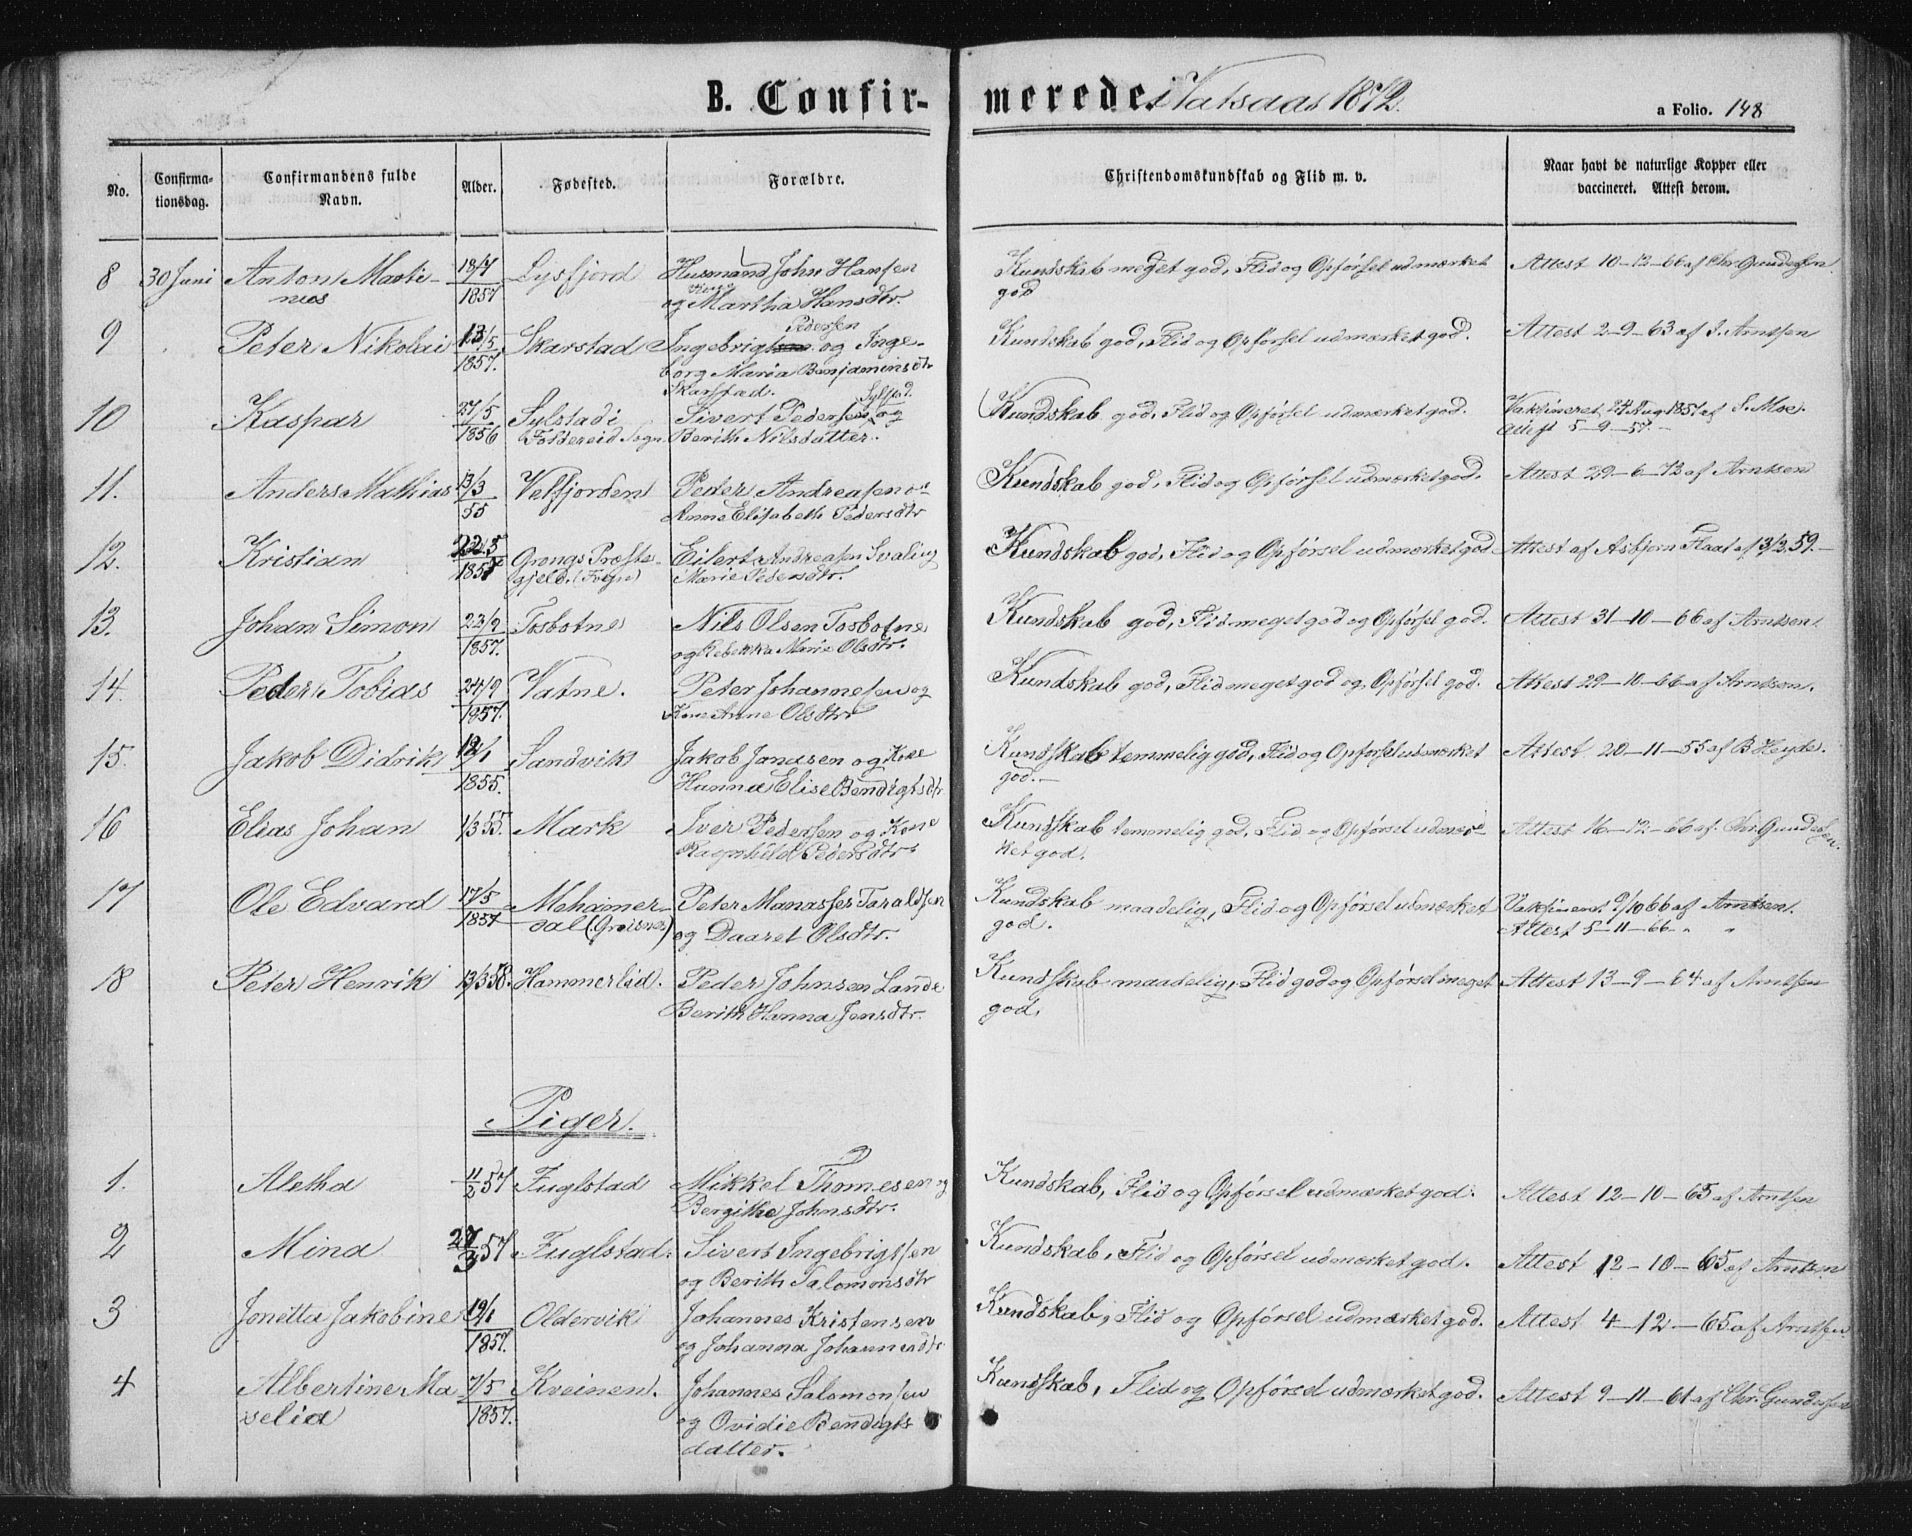 B. Confir-merede i Vatsaas 1872.
a Folio. 148
No.
Confirma-
tionsdag.
Confirmandens fulde
Navn.
Alder.
Fødested.
Forældre.
Christendomskundskab og Flid m. v.
Naar havt de naturlige Kopper eller
vaccineret. Attest derom.
8 30 Juni Anton Marti- 18/7 Lysfjord Husmand John Hansen Kundskab meget god, Flid og Opførsel udmærket Attest 10-12-66 af Chr. Gundersen
nus 1857 og Kone Martha Hansdtr. god
9 Peter Nikolai 13/5 Skarstad Ingebrigt Pedersen og Inge- Kundskab god, Flid og Opførsel udmærket god. Attest 2-9-63 af S. Arntsen
1857. borg Maria Benjaminsdtr
Skarstad.
10 Kaspar 27/5 Sylstad i Sivert Pedersen Sylstad og Kundskab god, Flid og Opførsel udmærket god. Vaksineret 24 Aug 1857 af S. Moe.
1856 Foldereid Sogn Berith Nilsdatter. Attest 5-9-57.
11. Anders Mathias 13/3 Velfjorden Peder Andreasen og Kundskab god, Flid og Opførsel udmærket god. Attest 29-6-72 af Arntsen
55 Anne Elisabeth Pedersdtr
12. Kristian 22/5 Grongs Præste- Eilert Andreasen Svaling Kundskab god, Flid og Opførsel udmærket god Attest af Asbjørn Flaat af 3/3 59.
1857 gjeld. Marie Pedersdtr.
13. Johan Simon 22/9 Tosbotne Nils Olsen Tosbotne Kundskab god, Flid meget god og Opførsel god. Attest 31-10-66 af Arntsen.
1857. og Rebekka Marie Olsdtr.
14. Peder Tobias 24/9 Vatne. Peter Johannesen og Kundskab god, Flid meget god og Opførsel god. Attest 29-10-66 af Arntsen.
1857. Kone Anne Olsdtr
15. Jakob Didrik 12/1 Sandvik Jakob Jansen og Kone Kundskab temmelig god, Flid og Opførsel udmærket Attest 20-11-55 af B Heyde.
1855. Hanna Elise Bendigtsdtr god.
16 Elias Johan 1/3 55. Mark Iver Pedersen og Kone Kundskab temmelig god, Flid og Opførsel udmær- Attest 16-12-66 af Chr. Gundersen.
Ragnhild Pedersdtr. ket god.
17 Ole Edvard 17/5 Mehamer- Peter Manasses Taraldsen Kundskab maadelig, Flid og Opførsel udmærket Vaksineret 9/10 66 af Arntsen.
1857 dal (Greisnes) og Daaret Olsdtr. god. Attest 5-11-66 " "
18 Peter Henrik 13/3 58. Hammerlid. Peder Johnsen Lande Kundskab maadelig, Flid god og Opførsel meget Attest 13-9-64 af Arntsen
Berith Hanna Jensdtr. god.
Piger.
1. Aletha 11/2 57 Fuglstad Mikkel Thomesen og Kundskab, Flid og Opførsel udmærket god. Attest 12-10-65 af Arntsen
Bergithe Johnsdtr.
2 Mina 27/3 57 Fuglstad. Sivert Ingebrigtsen Kundskab, Flid og Opførsel udmærket god. Attest 12-10-65 af Arntsen
og Berith Salomonsdtr
3 Jonetta Jakobine 19/1 Oldervik Johannes Kristensen Kundskab, Flid og Opførsel udmærket god. Attest 4-12-65 af Arntsen
1857. og Johanna Johannesdtr
4 Albertine Ma- 7/5 Kveinen. Johannes Salomonsen Kundskab, Flid og Opførsel udmærket god. Attest 9-11-61 af Chr. Gundersen
selia 1857. og Ovidie Bendigts
datter.